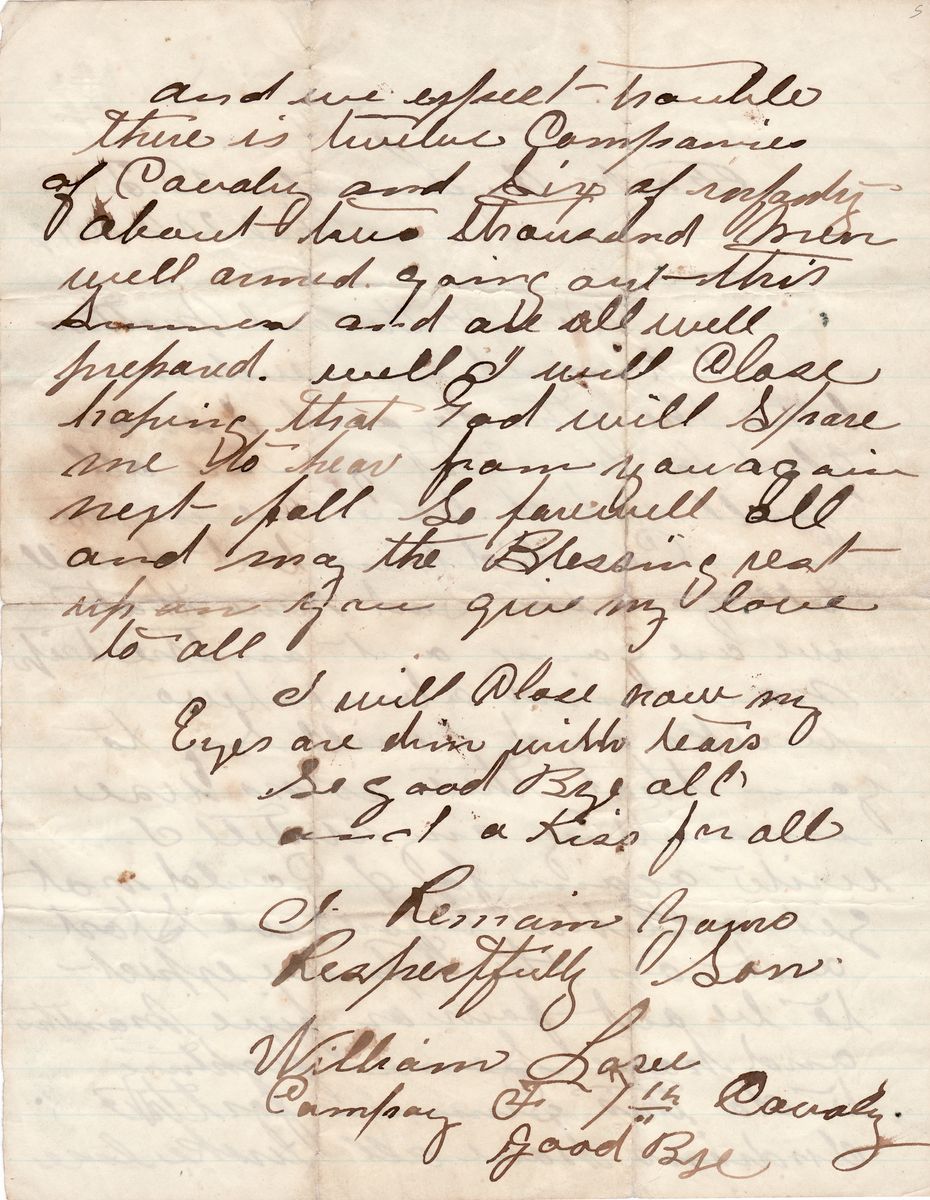 5
and we expect trouble
there is twelve Companies
of Cavalry and Six of infantry
about two thousand Men
well armed. going out this
Summer and are all well
prepared. well I will Close
hoping that God will Spare
me to hear from you again
next fall So farewell all
and may the Blessing rest
upon you give my love
to all
I will Close now my
Eyes are dim with tears
So good Bye all
and a Kiss for all
I Remain Yours
Respectfully Son.
William
Company F 7th Cavalry.
Good Bye